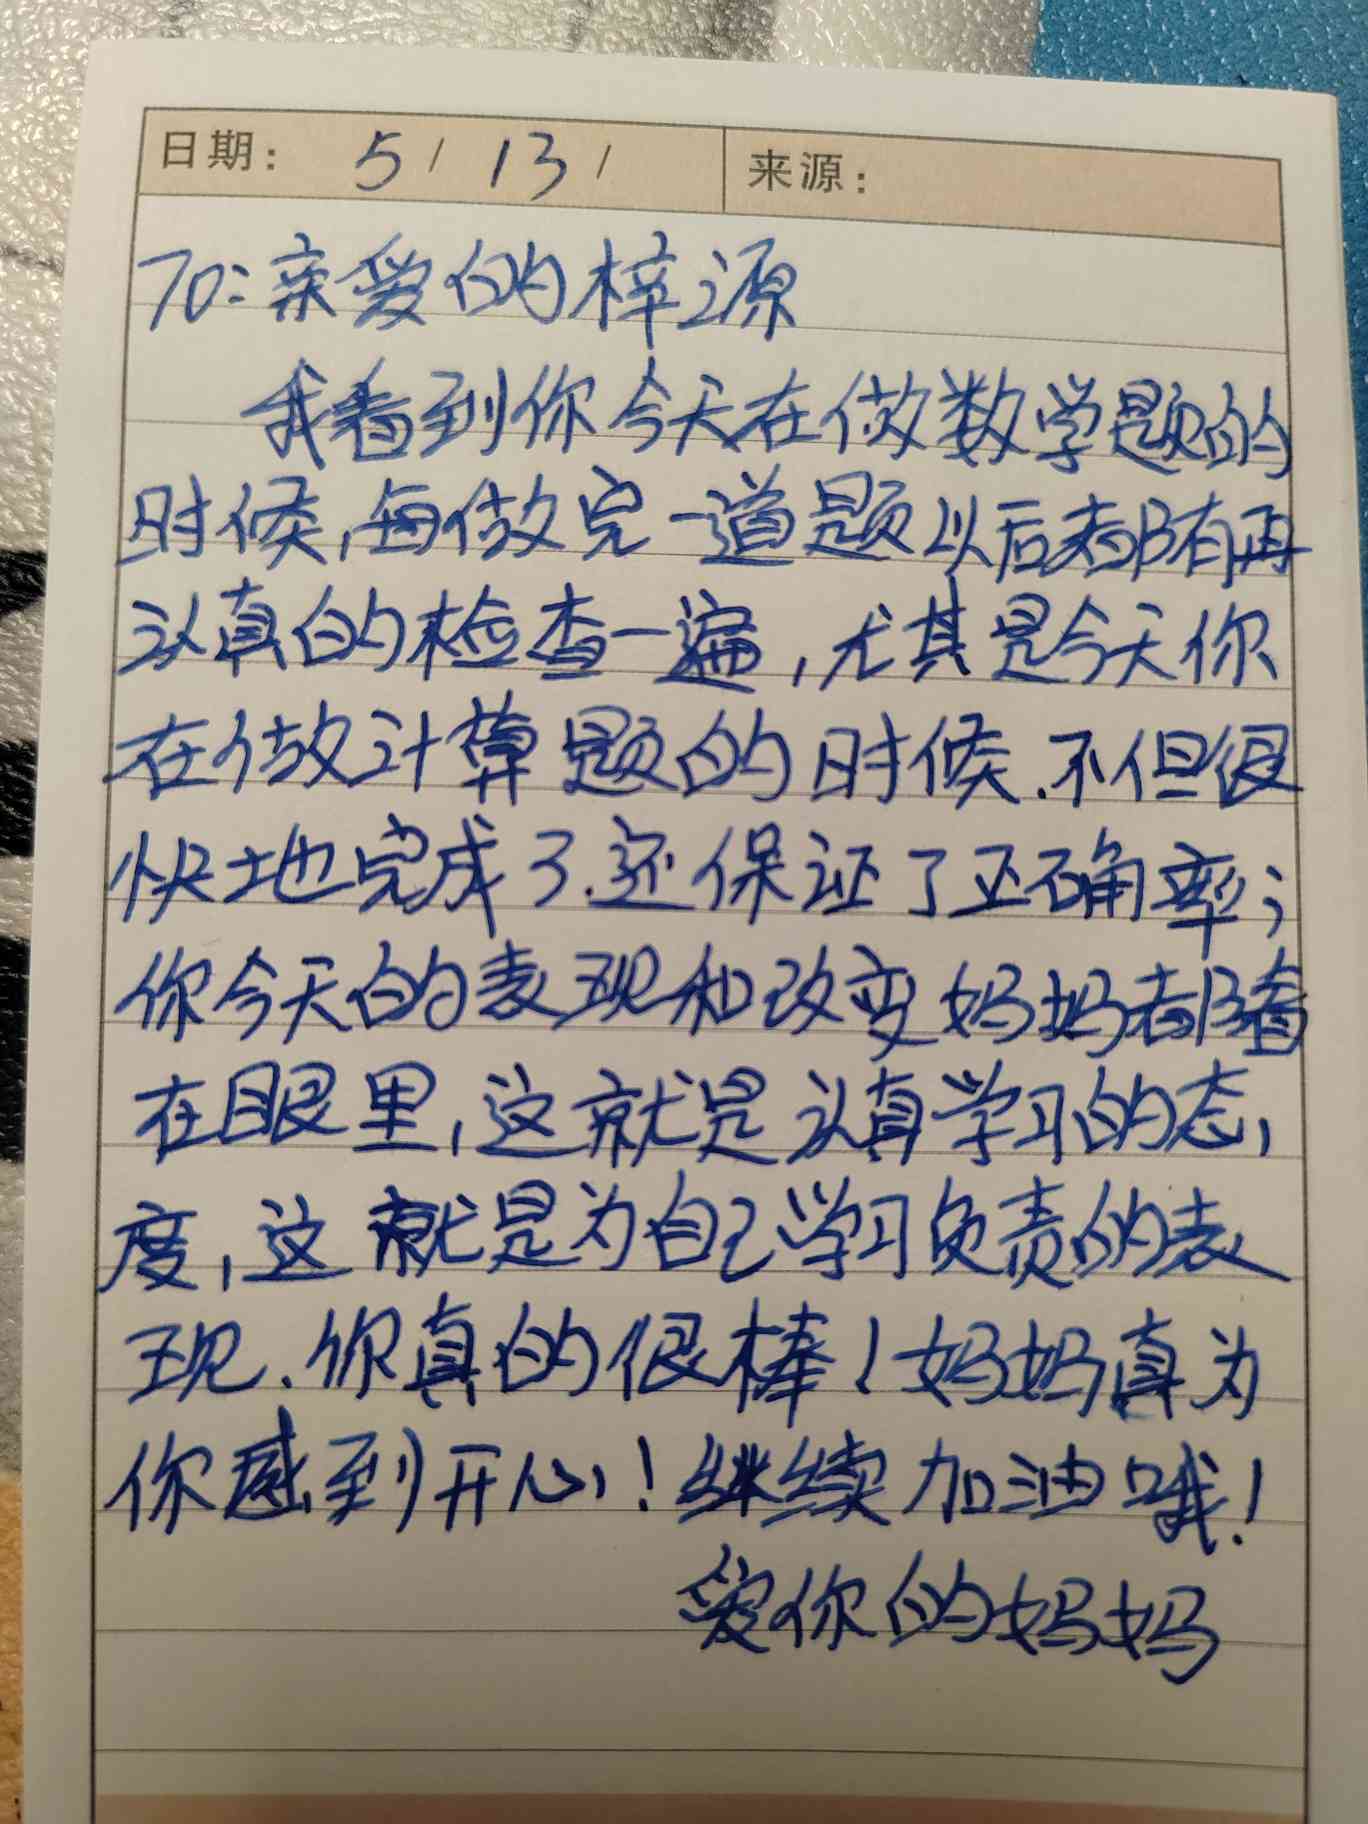 日期： 5/ 13/ 来源：
TO：亲爱的梓源
我看到你今天在做数学题的
时候，每做完一道题以后都有再
认真的检查一遍，尤其是今天你
在做计算题的时候．不但很
快地完成了．还保证了正确率；
你今天的表现和改变妈妈都看
在眼里，这就是认真学习的态
度，这就是为自己学习负责的表
现．你真的很棒！妈妈真为
你感到开心！继续加油哦！
爱你的妈妈